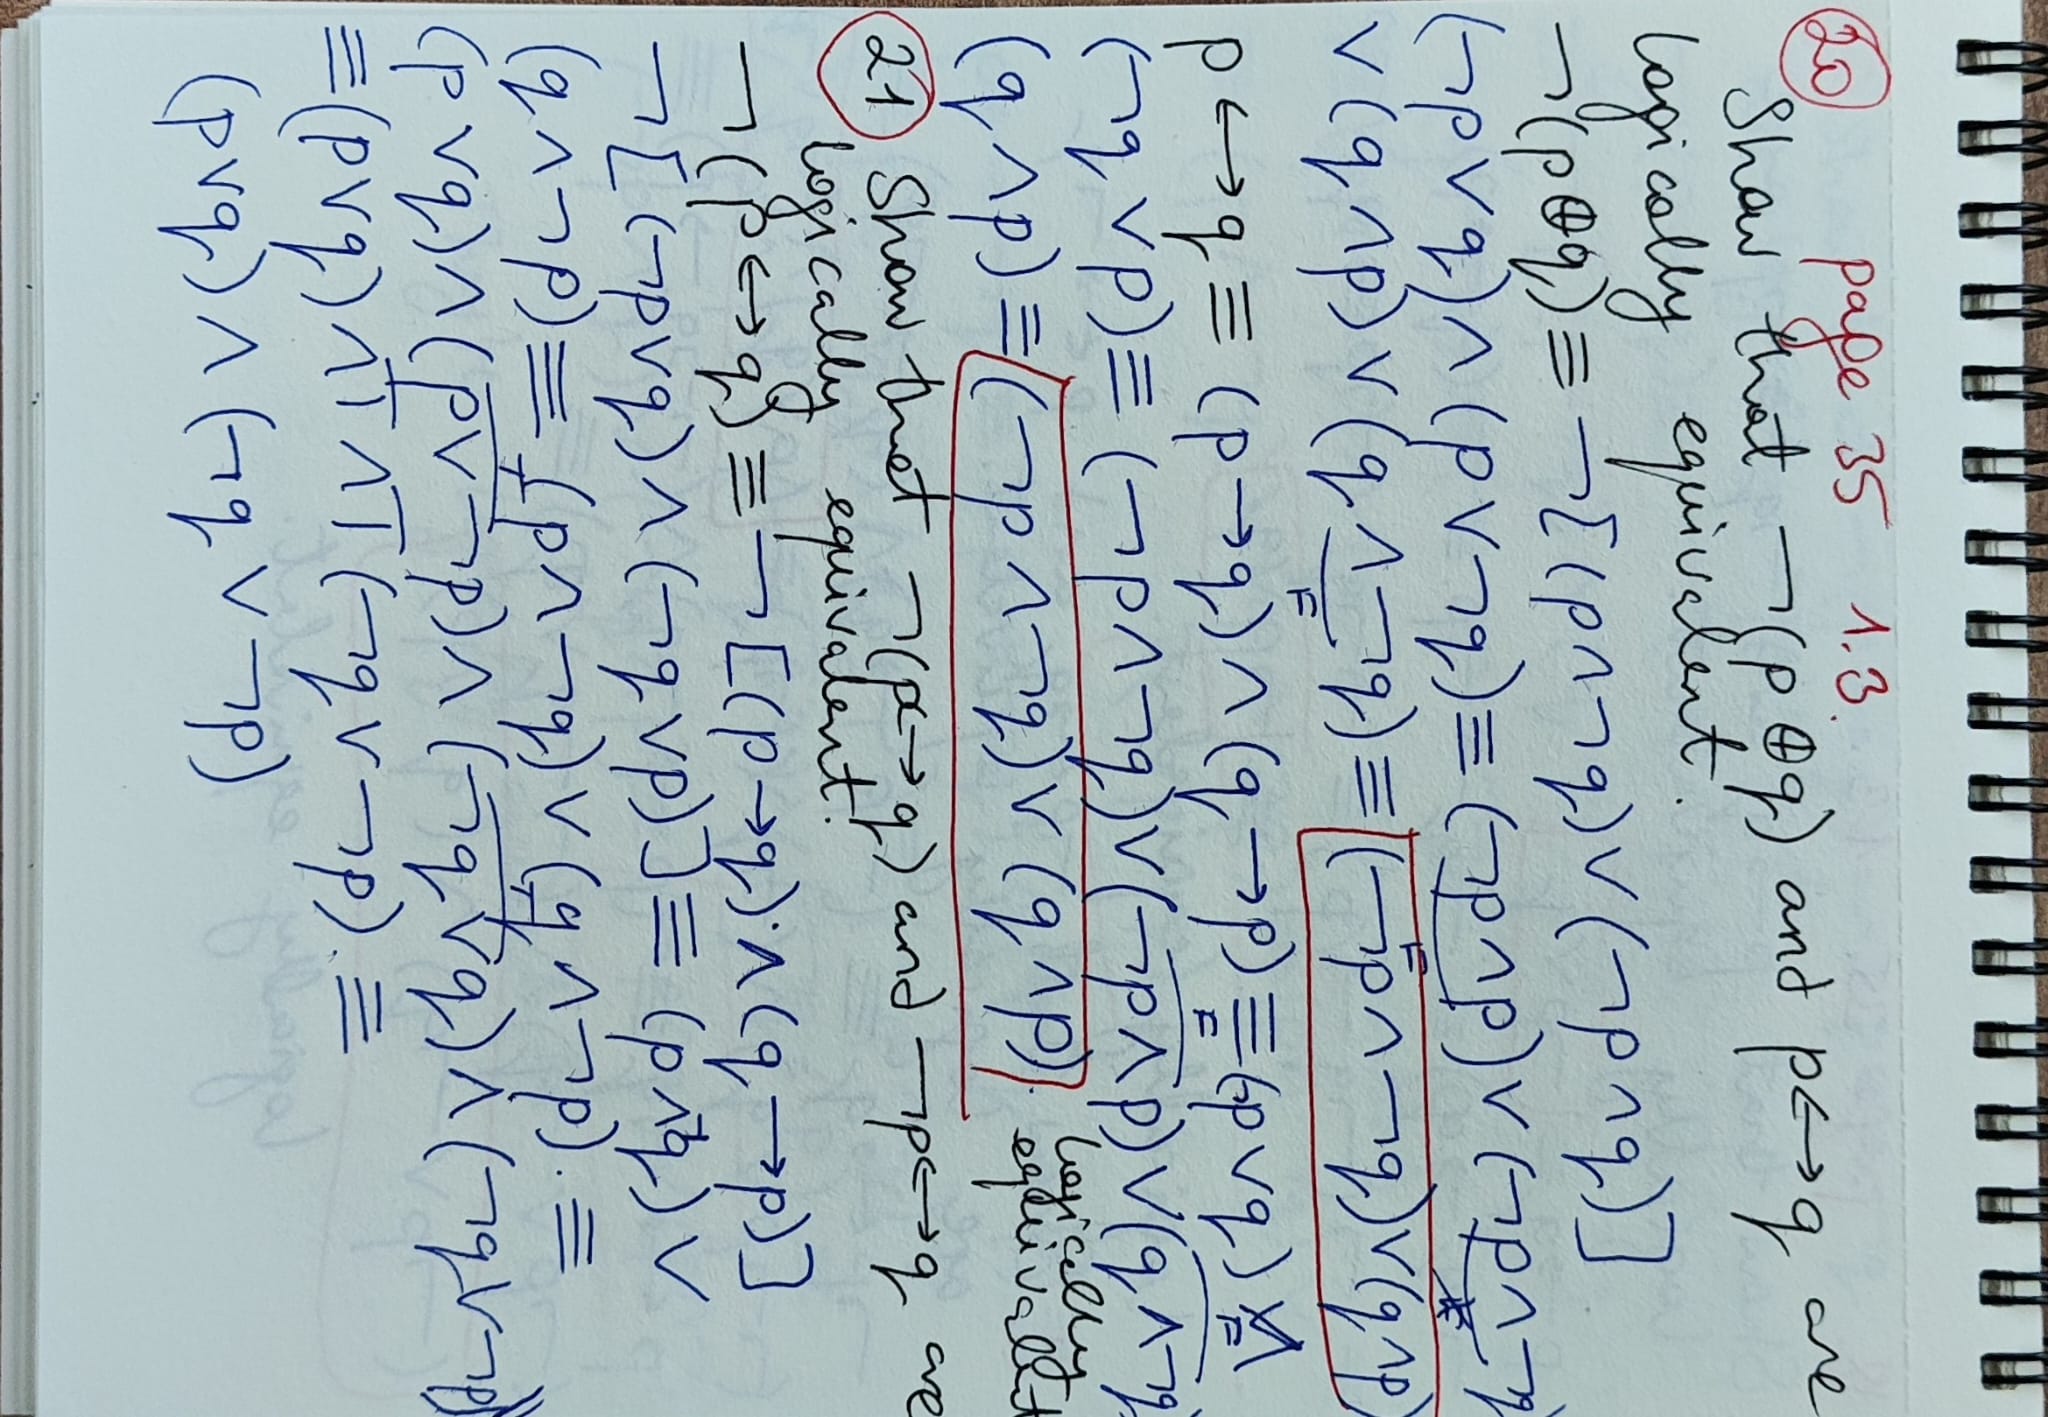 20 page 35 1.3.
Show that ¬(p⊕q) and p↔q are
logically equivalent.
¬(p⊕q) ≡ ¬[(p∧¬q)∨(¬p∧q)]
(¬p∨q)∧(p∨¬q) ≡ (¬p∧p)∨(¬p∧¬q)
∨(q∧p)∨(q∧¬q) ≡ (¬p∧¬q)∨(q∧p)
F
F
p↔q ≡ (p→q)∧(q→p) ≡ (¬p∨q)∧
(¬q∨p) ≡ (¬p∧¬q)∨(¬p∧p)∨(q∧¬q)∨
F
F
(q∧p) ≡ (¬p∧¬q)∨(q∧p). logically
equivalent
21 Show that ¬(p↔q) and ¬p↔q are
logically equivalent.
¬(p↔q) ≡ ¬[(p→q)∧(q→p)]
¬[(¬p∨q)∧(¬q∨p)] ≡ (p∧¬q)∨
(q∧¬p) ≡ (p∧¬q)∨(q∧¬p). ≡
T
T
(p∨q)∧(p∨¬p)∧(¬q∨q)∧(¬q∨¬p)
≡ (p∨q)∧T∧T∧(¬q∨¬p). ≡
(p∨q)∧(¬q∨¬p)